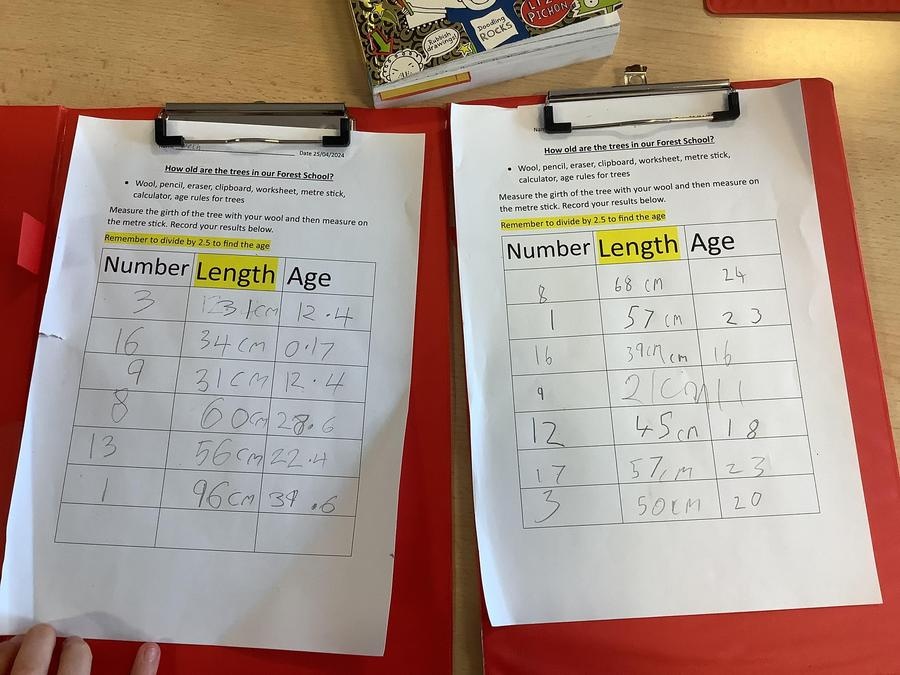 Rubbish drawings!
Doodling ROCKS
LIZ PICHON
Date 25/04/2024
How old are the trees in our Forest School?
• Wool, pencil, eraser, clipboard, worksheet, metre stick,
calculator, age rules for trees
Measure the girth of the tree with your wool and then measure on
the metre stick. Record your results below.
Remember to divide by 2.5 to find the age
Number Length Age
3 cm 12.4
16 34 cm 0.17
9 31 cm 12.4
8 60cm 28.6
13 56 cm 22.4
1 96 cm .6
How old are the trees in our Forest School?
• Wool, pencil, eraser, clipboard, worksheet, metre stick,
calculator, age rules for trees
Measure the girth of the tree with your wool and then measure on
the metre stick. Record your results below.
Remember to divide by 2.5 to find the age
Number Length Age
8 68 cm 24
1 57 cm 23
16 39cm cm 16
9 21cm 11
12 45cm 18
17 57cm 23
3 50cm 20